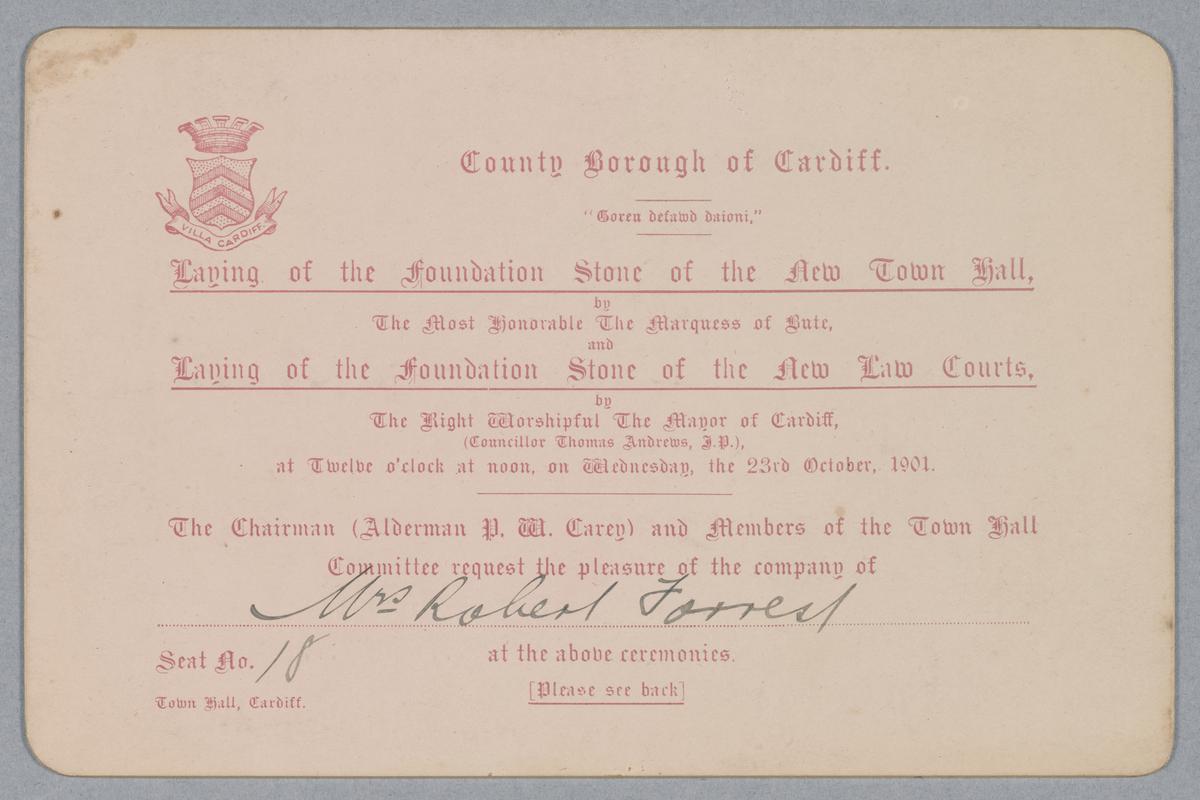 VILLA CARDIFF.
County Borough of Cardiff.
"Goreu defawd daioni,"
Laying of the Foundation Stone of the New Town Hall,
by
The Most Honorable The Marquess of Bute,
and
Laying of the Foundation Stone of the New Law Courts,
by
The Right Worshipful The Mayor of Cardiff,
(Councillor Thomas Andrews, J.P.),
at Twelve o'clock at noon, on Wednesday, the 23rd October, 1901.
The Chairman (Alderman P. W. Carey) and Members of the Town Hall
Committee request the pleasure of the company of
Mrs Robert Forrest
at the above ceremonies.
Seat No. 18
[Please see back]
Town Hall, Cardiff.